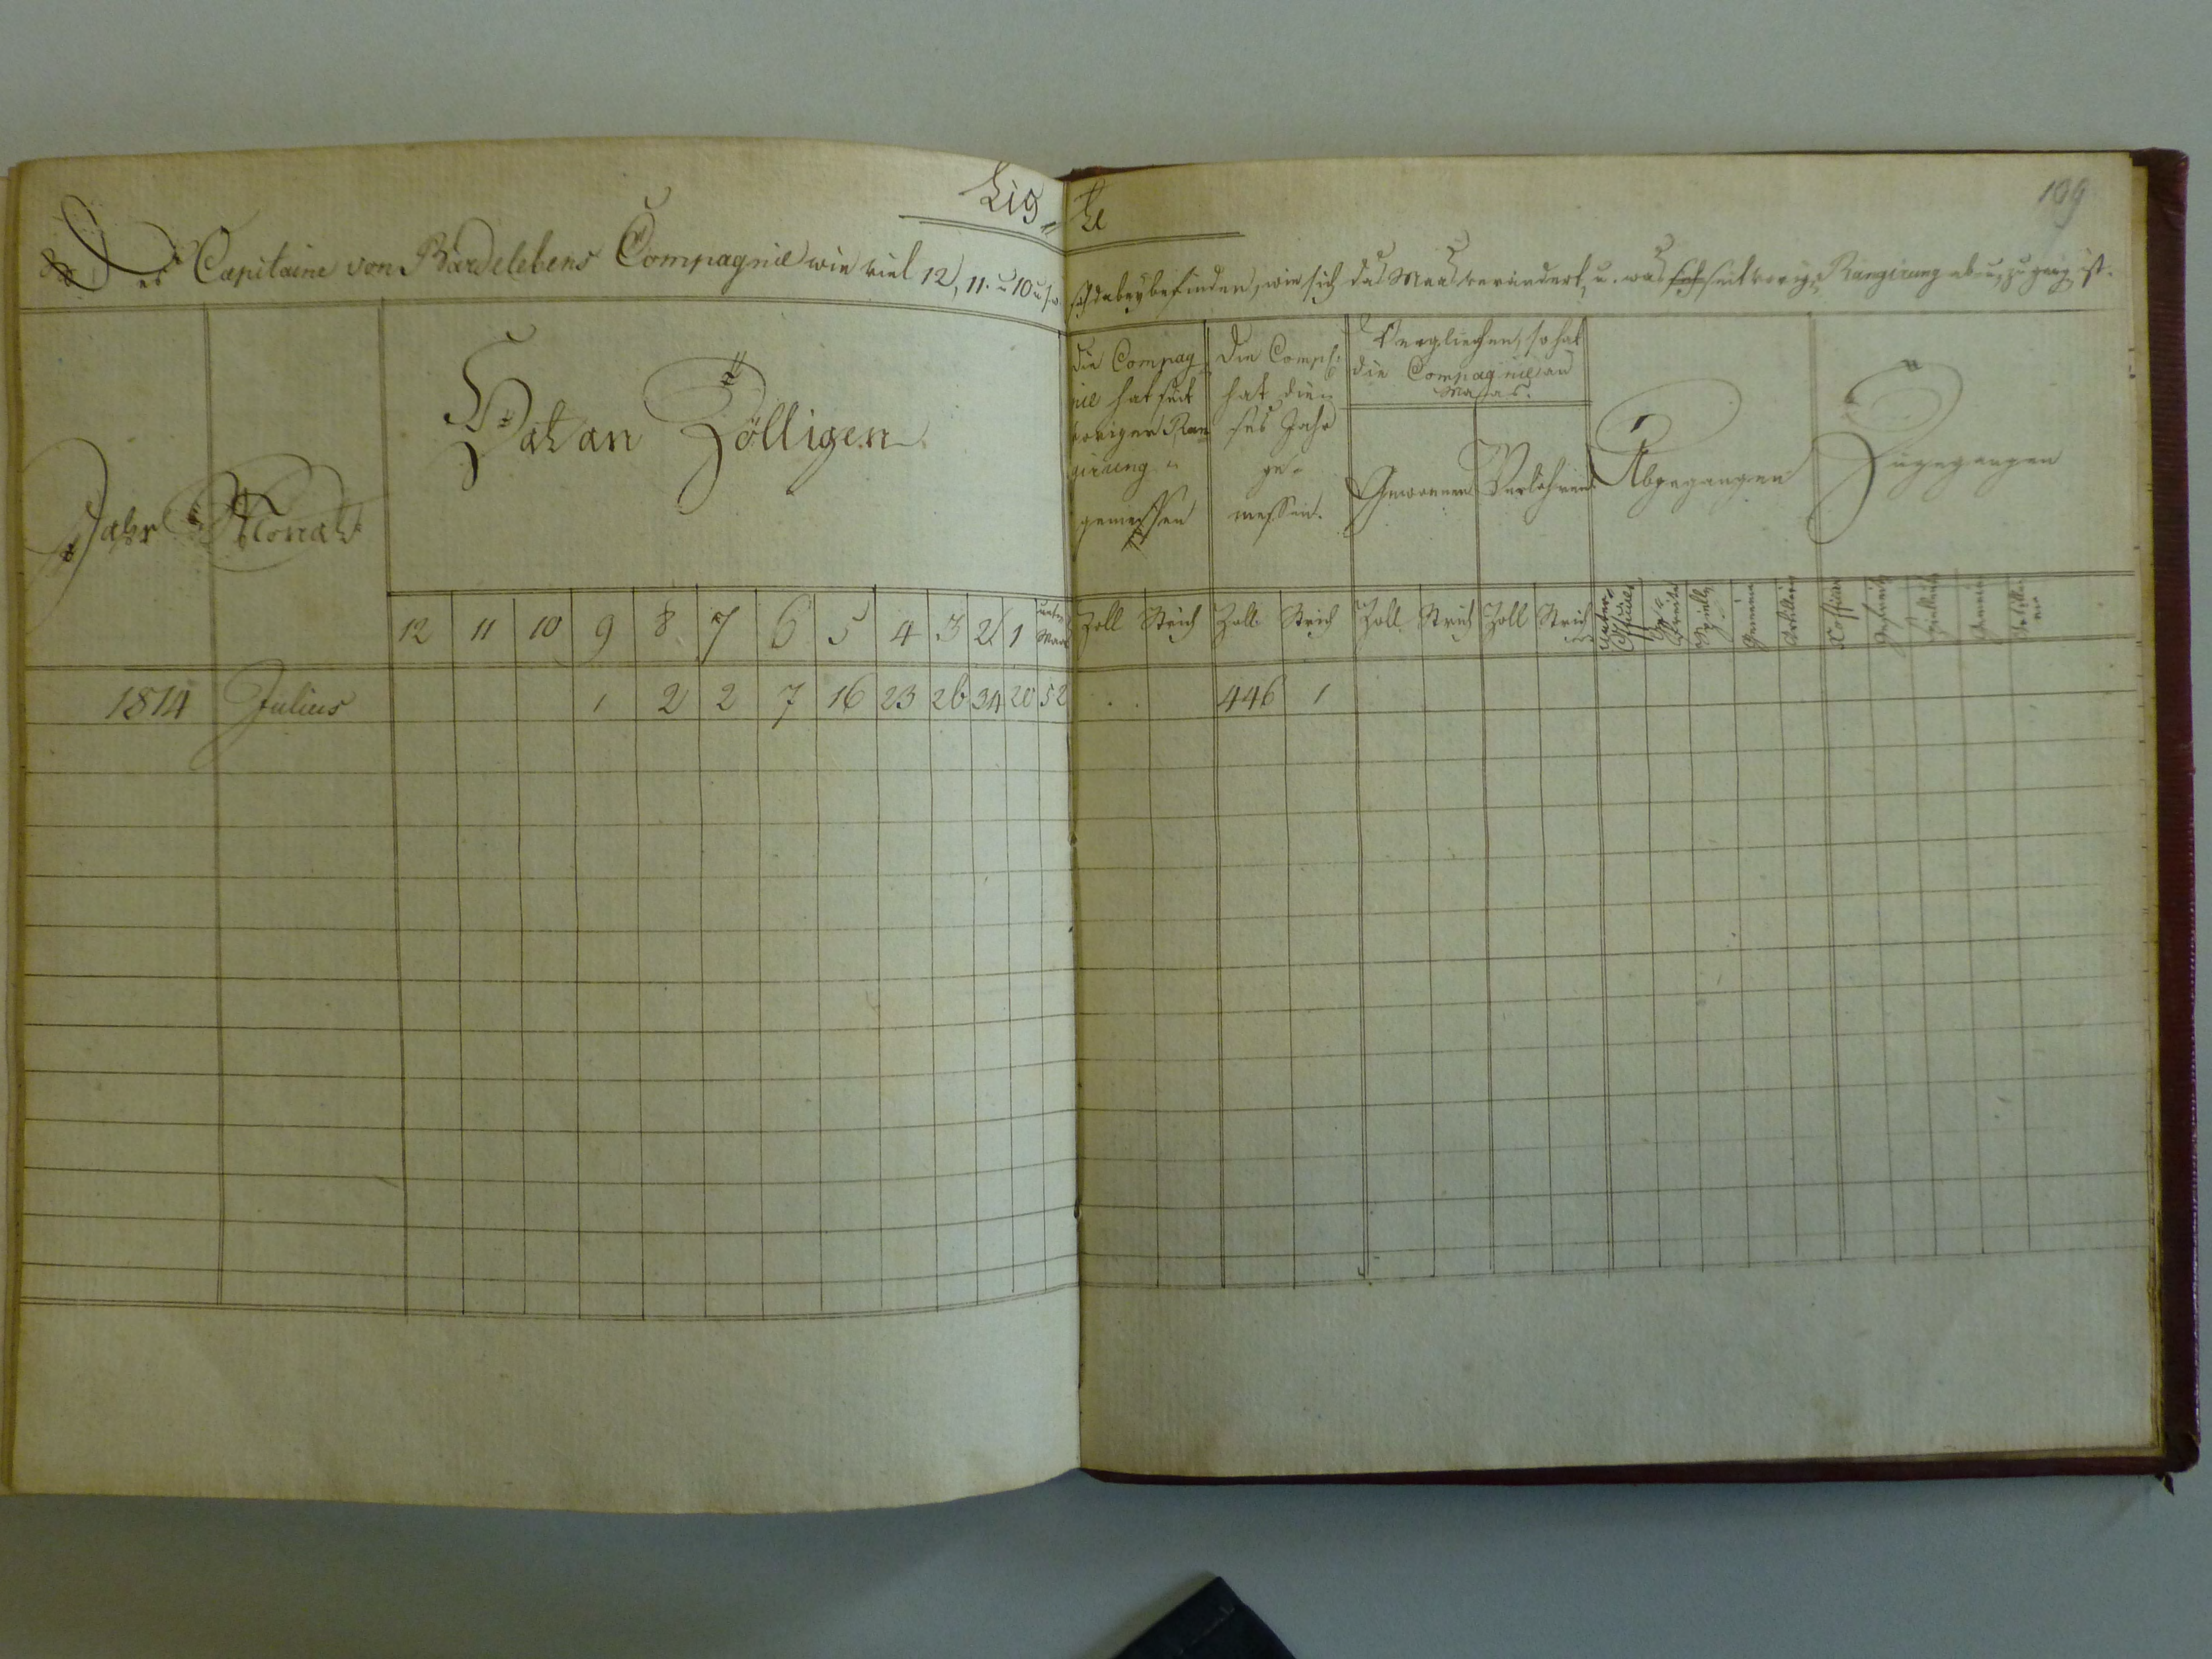 Lis„te
109
Des Capitaine von Bardelebens Compagnie wie viel 12, 11. u 10 u s w sich dabey befinden, wie sich das Maas verändert, u. was seit vorige Rangirung ab u. zu gang ist.
Jahr
Monat
Hat an Zölligen
die Compag„
nie hat seit
voriger Ran
girung
gemessen
Die Comp:
hat die„
ses Jahr
ge„
messen.
Verglichen, so hat
die Compagnie an
Maas.
Gewonnen
Verlohren
Abgegangen
Zugegangen
12 11 10 9 8 7 6 5 4 3 2 1 unter Maas Zoll Strich Zoll Strich Zoll Strich Zoll Strich Unter Officier Gefreite Spielleute Gemeine
1814 Julius 1 2 2 7 16 23 26 34 20 52 446 1